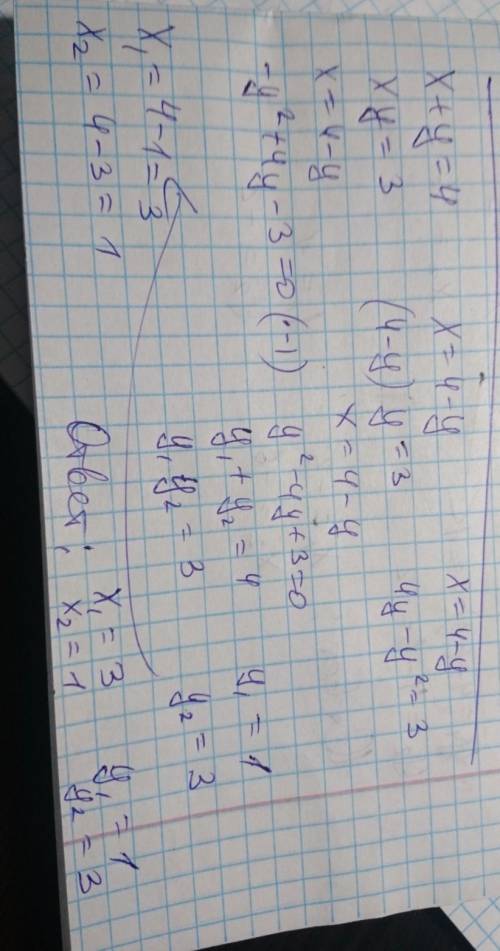 x + y = 4 x = 4 - y x = 4 - y
xy = 3 (4 - y) y = 3 4y - y² = 3
x = 4 - y x = 4 - y
-y² + 4y - 3 = 0 (·-1) y² - 4y + 3 = 0
y₁ + y₂ = 4 y₁ = 1
y₁ y₂ = 3 y₂ = 3
x₁ = 4 - 1 = 3
x₂ = 4 - 3 = 1
Ответ: x₁ = 3 y₁ = 1
x₂ = 1 y₂ = 3